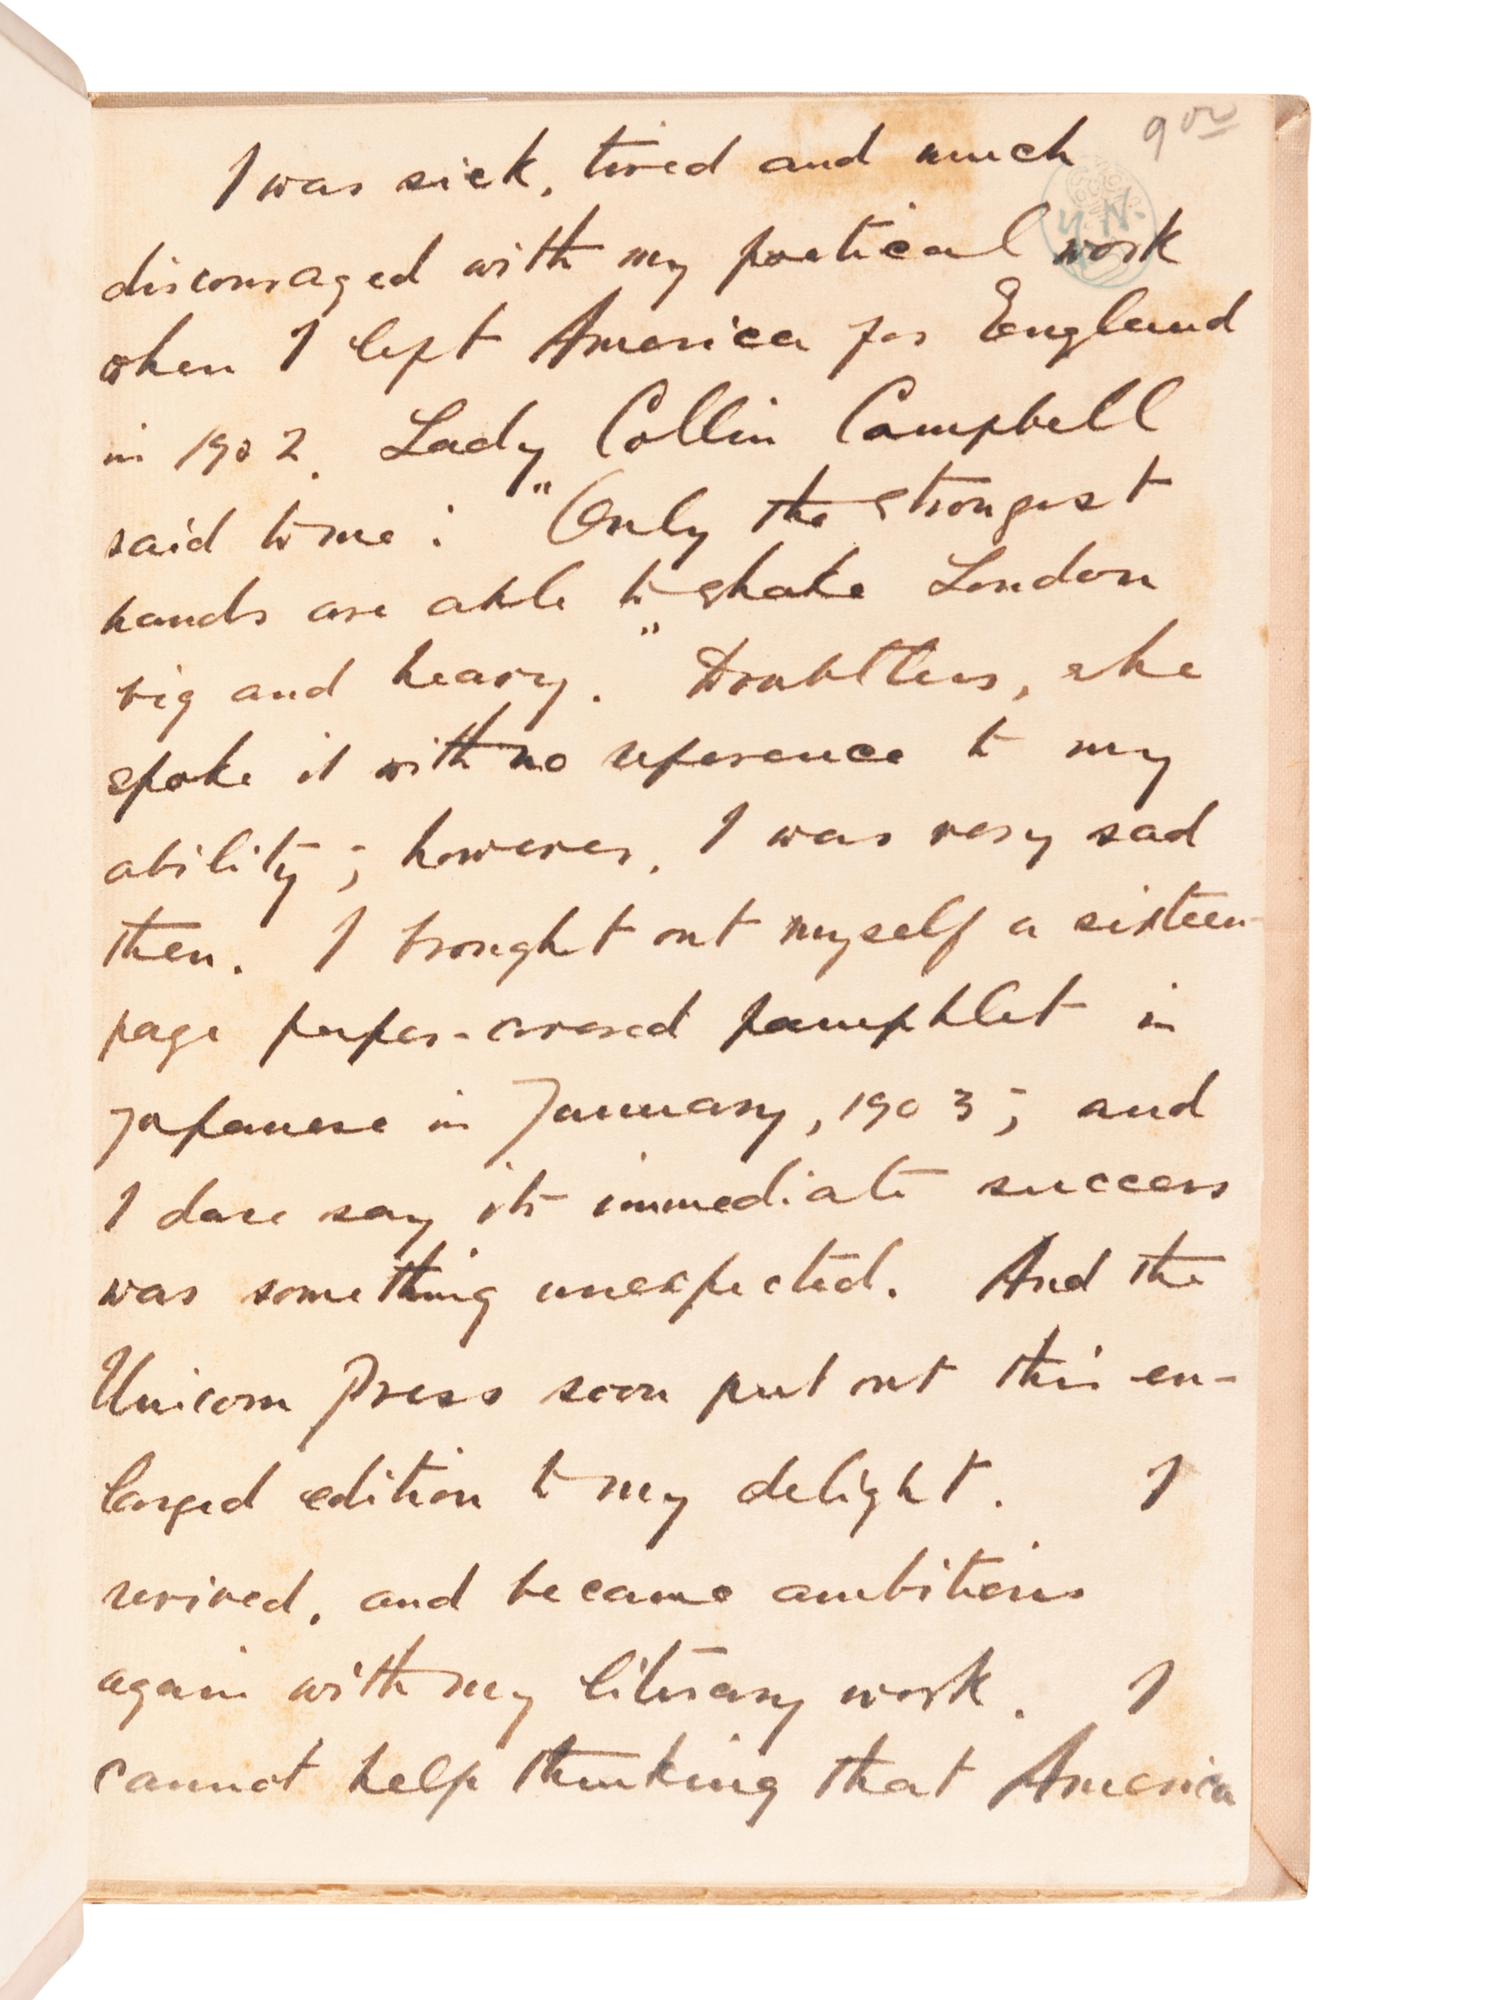 9 00
Y.N.
I was sick, tired and much
discouraged with my poetical work
when I left America for England
in 1902. Lady Collin Campbell
said to me: "Only the strongest
hands are able to shake London
big and heavy." Doubtless, she
spoke it with no reference to my
ability; however, I was very sad
then. I brought out myself a sixteen-
page paper-covered pamphlet in
Japanese in January, 1903; and
I dare say its immediate success
was something unexpected. And the
Unicorn Press soon put out this en-
larged edition to my delight. I
revived, and became ambitious
again with my literary work. I
cannot help thinking that America